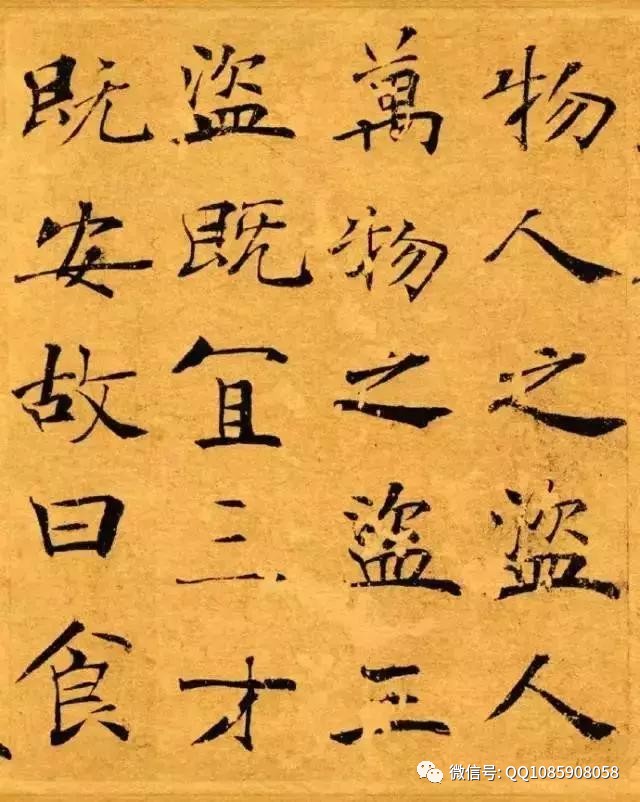 物人之盜人
萬物之盜三
盜既宜三才
既安故曰食
微信号: QQ1085908058